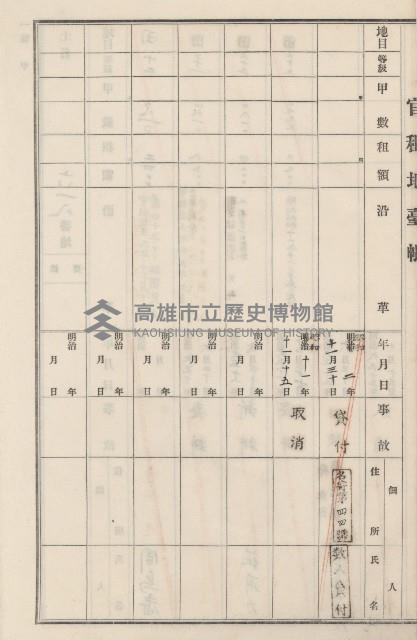 官租地臺帳
地目
等級
甲數
租額
沿革
年月日
事故
個人
住所氏名
昭和
明治 二年
十一月三十日
貸付
名寄第四四號
數人貸付
昭和
明治十一年
十二月十五日
取消
明治 年
月 日
明治 年
月 日
明治 年
月 日
明治 年
月 日
明治 年
月 日
高雄市立歷史博物館
KAOHSIUNG MUSEUM OF HISTORY